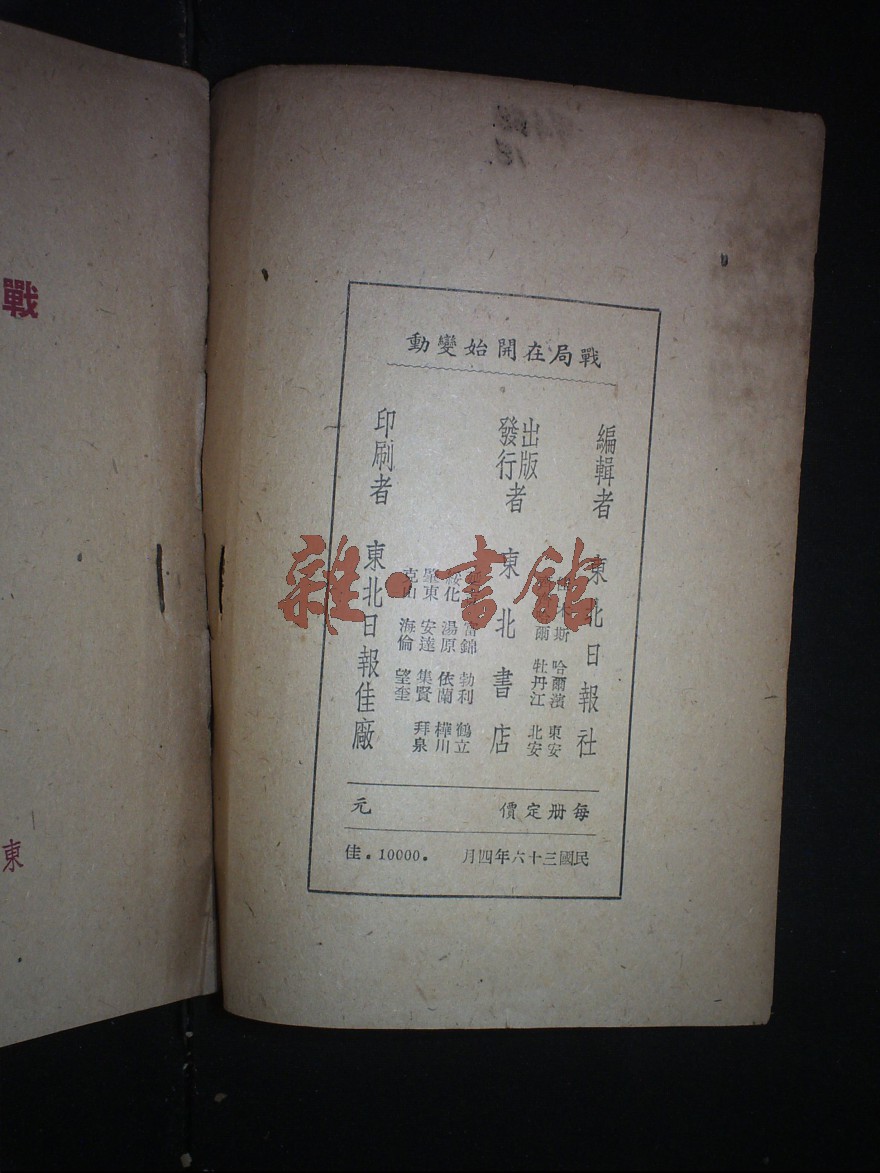 戰
東
戰局在開始變動
編輯者 東北日報社
出版發行者 東北書店
木斯 哈爾濱 東安
爾 牡丹江 北安
富錦 勃利 鶴立
綏化 湯原 依蘭 樺川
肇東 安達 集賢 拜泉
克山 海倫 望奎
印刷者 東北日報佳廠
每册定價 元
民國三十六年四月 .10000. 佳
雜·書館